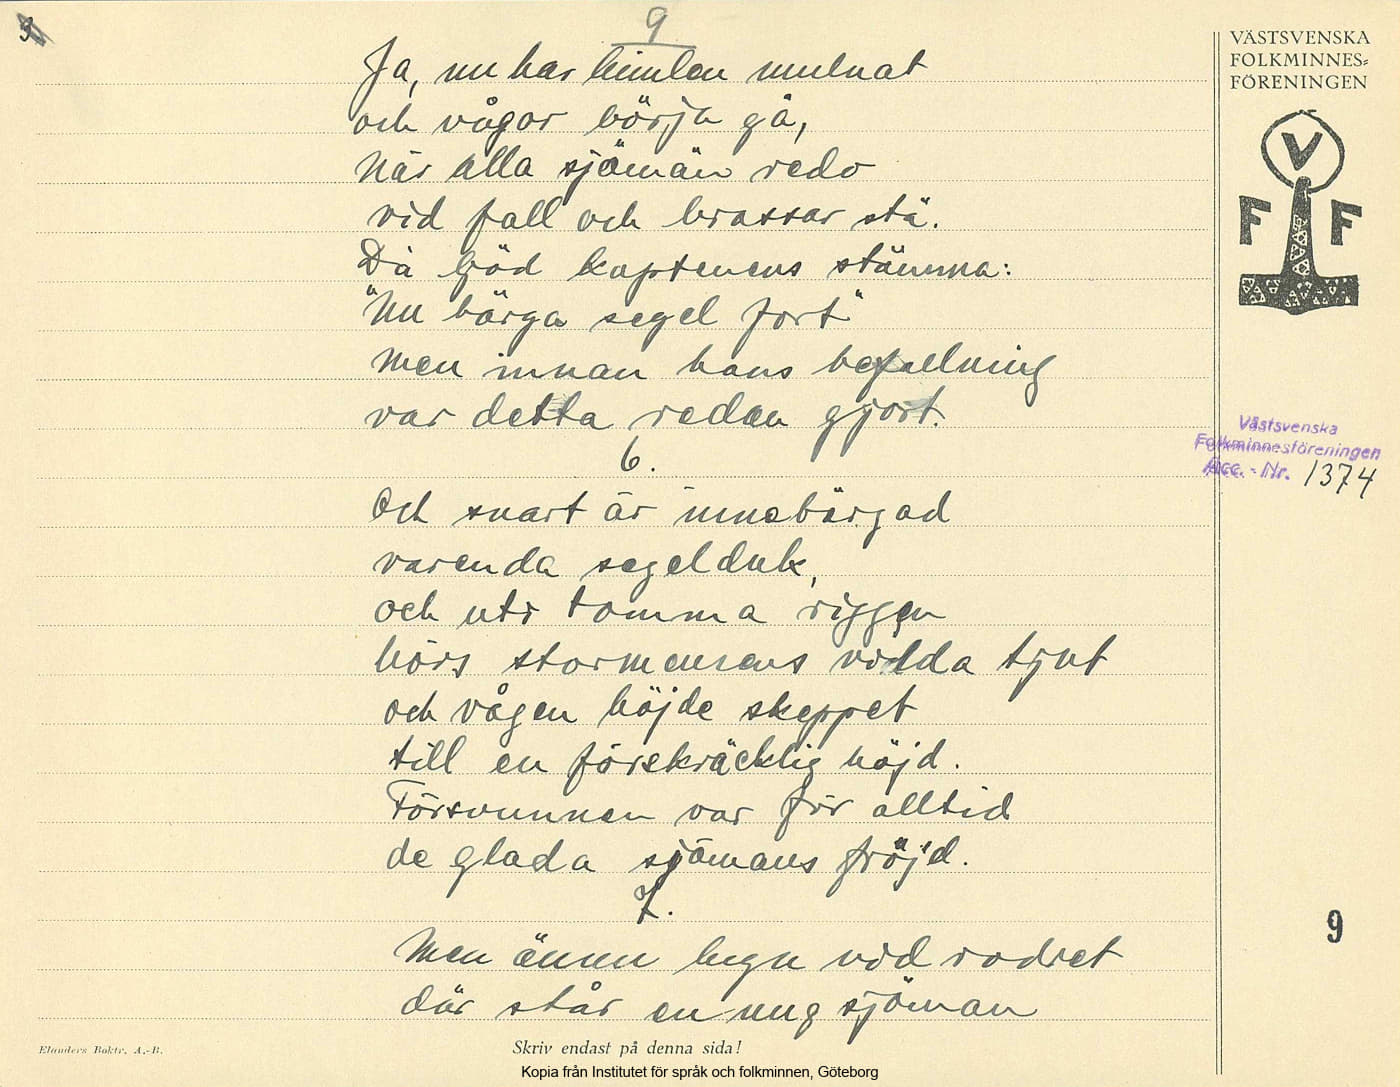 9
9
Ja, nu har himlen mulnat
och vågor börja gå,
När alla sjömän redo
vid fall och brassar stå.
Då bjöd kaptenens stämma:
"Nu bärga segel fort"
Men innan hans befallning
var detta redan gjort.
6.
Och snart är innebärgad
varenda segelduk,
och uti tomma riggen
hörs stormens vilda tjut
och vågen höjde skeppet
till en förskräcklig höjd.
Försvunnen var för alltid
de glada sjömans fröjd.
7.
Men ännu lugn vid rodret
där står en ung sjöman
VÄSTSVENSKA
FOLKMINNES=
FÖRENINGEN
V
F F
Västsvenska
Folkminnesföreningen
Acc. - Nr. 1374
9
Elanders Boktr. A.-B.
Skriv endast på denna sida!
Kopia från Institutet för språk och folkminnen, Göteborg